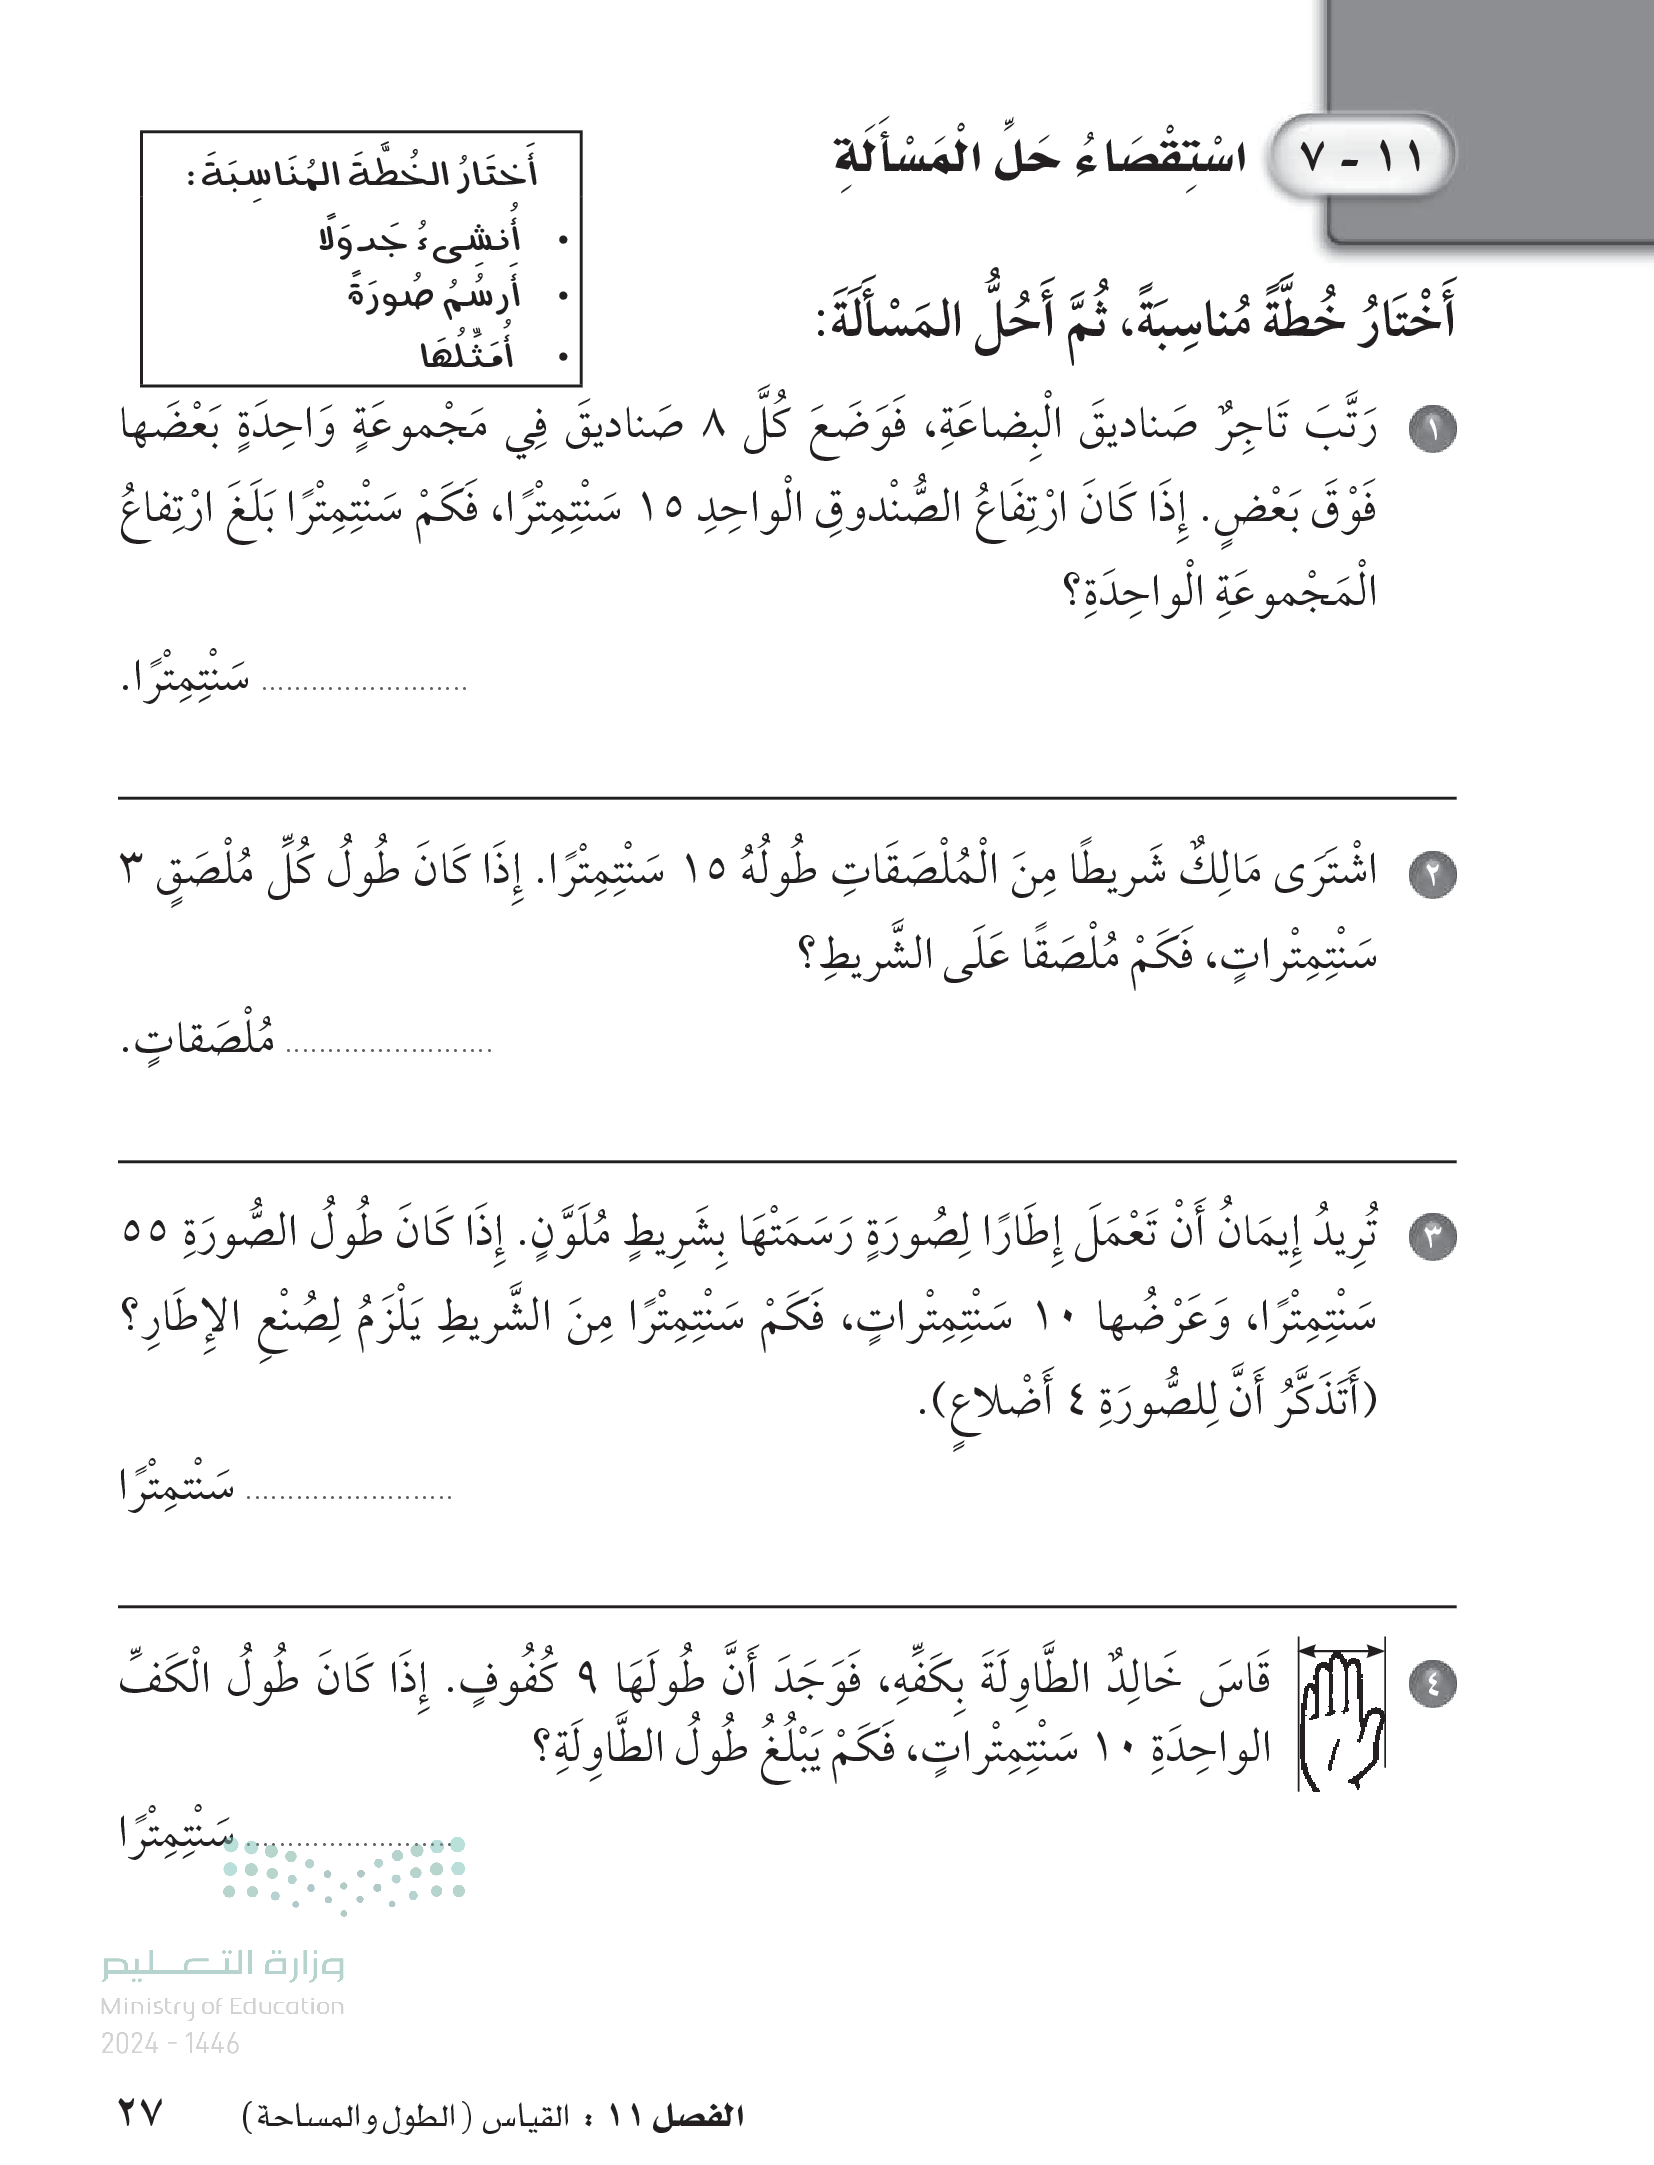 ١١ - ٧ اسْتِقْصَاءُ حَلِّ الْمَسْأَلَةِ
أَختَارُ الخُطَّةَ المُنَاسِبَةَ:
• أُنشِىءُ جَدوَلًا
• أَرسُمُ صُورَةً
• أُمَثِّلُهَا
أَخْتَارُ خُطَّةً مُناسِبَةً، ثُمَّ أَحُلُّ المَسْأَلَةَ:
١ رَتَّبَ تَاجِرٌ صَناديقَ الْبِضاعَةِ، فَوَضَعَ كُلَّ ٨ صَناديقَ فِي مَجْموعَةٍ وَاحِدَةٍ بَعْضَها
فَوْقَ بَعْضٍ. إِذَا كَانَ ارْتِفَاعُ الصُّنْدوقِ الْواحِدِ ١٥ سَنْتِمِتْرًا، فَكَمْ سَنْتِمِتْرًا بَلَغَ ارْتِفاعُ
الْمَجْموعَةِ الْواحِدَةِ؟
......................... سَنْتِمِتْرًا.
٢ اشْتَرَى مَالِكٌ شَريطًا مِنَ الْمُلْصَقَاتِ طُولُهُ ١٥ سَنْتِمِتْرًا. إِذَا كَانَ طُولُ كُلِّ مُلْصَقٍ ٣
سَنْتِمِتْراتٍ، فَكَمْ مُلْصَقًا عَلَى الشَّريطِ؟
......................... مُلْصَقاتٍ.
٣ تُرِيدُ إِيمَانُ أَنْ تَعْمَلَ إِطَارًا لِصُورَةٍ رَسَمَتْهَا بِشَرِيطٍ مُلَوَّنٍ. إِذَا كَانَ طُولُ الصُّورَةِ ٥٥
سَنْتِمِتْرًا، وَعَرْضُها ١٠ سَنْتِمِتْراتٍ، فَكَمْ سَنْتِمِتْرًا مِنَ الشَّريطِ يَلْزَمُ لِصُنْعِ الإِطَارِ؟
(أَتَذَكَّرُ أَنَّ لِلصُّورَةِ ٤ أَضْلاعٍ).
......................... سَنْتمِتْرًا
٤ قَاسَ خَالِدٌ الطَّاوِلَةَ بِكَفِّهِ، فَوَجَدَ أَنَّ طُولَهَا ٩ كُفُوفٍ. إِذَا كَانَ طُولُ الْكَفِّ
الواحِدَةِ ١٠ سَنْتِمِتْراتٍ، فَكَمْ يَبْلُغُ طُولُ الطَّاوِلَةِ؟
......................... سَنْتِمِتْرًا
وزارة التعليم
Ministry of Education
2024 - 1446
الفصل ١١ : القياس (الطول والمساحة) ٢٧